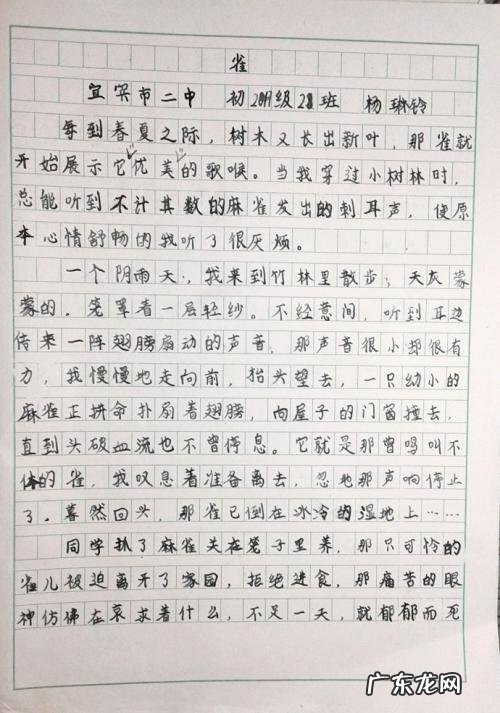 雀
宜宾市二中 初2019级28班 杨琳铃
每到春夏之际，树木又长出新叶，那雀就
开始展示它优美的歌喉。当我穿过小树林时，
总能听到不计其数的麻雀发出的刺耳声，使原
本心情舒畅的我听了很厌烦。
一个阴雨天，我来到竹林里散步；天灰蒙
蒙的，笼罩着一层轻纱。不经意间，听到耳边
传来一阵翅膀扇动的声音，那声音很小却很有
力，我慢慢地走向前，抬头望去，一只幼小的
麻雀正拼命扑扇着翅膀，向屋子的门窗撞去，
直到头破血流也不曾停息。它就是那曾鸣叫不
休的雀，我叹息着准备离去，忽地那声响停止
了。蓦然回头，那雀已倒在冰冷的湿地上……
同学抓了麻雀关在笼子里养，那只可怜的
雀儿被迫离开了家园，拒绝进食，那痛苦的眼
神仿佛在哀求着什么，不足一天，就郁郁而死
广东龙网